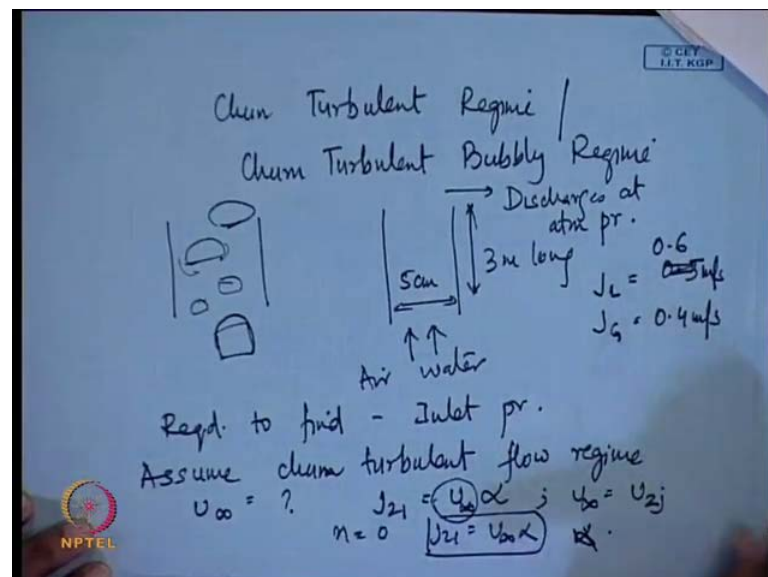 © CET
I.I.T. KGP
Churn Turbulent Regime /
Churn Turbulent Bubbly Regime
→ Discharges at
atm pr.
5cm
3m long
0.6
J_L = m/s
J_G = 0.4 m/s
↑ ↑
Air water
Reqd. to find - Inlet pr.
Assume churn turbulent flow regime
u_∞ = ? J_21 = u_∞ α ; u_∞ = u_2j
n = 0 J_21 = u_∞ α
NPTEL